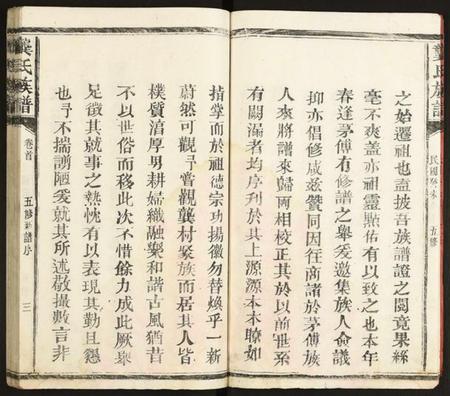 龔氏族譜
民國癸未
五修
之始遷祖也盍披吾族譜證之閱竟果絲
毫不爽蓋亦祖靈㸃佑有以致之也本年
春逢茅傅有修譜之舉爰邀集族人僉議
抑亦倡修咸兹贊同因徃商諸於茅傅族
人來將譜來歸兩相校正其於以前世系
有闕漏者均序列於其上源源本本瞭如
指掌而於祖德宗功揚徽勿替煥乎一新
蔚然可觀予嘗觀龔村聚族而居其人皆
樸質渞厚男耕婦織融樂和諧古風猶昔
不以世俗而移此次不惜餘力成此厥舉
足徵其就事之熱忱有以表現其勤且懇
也予不揣謭陋爰就其所述敬撮數言非
龔氏族譜
卷首
五修新譜序
三